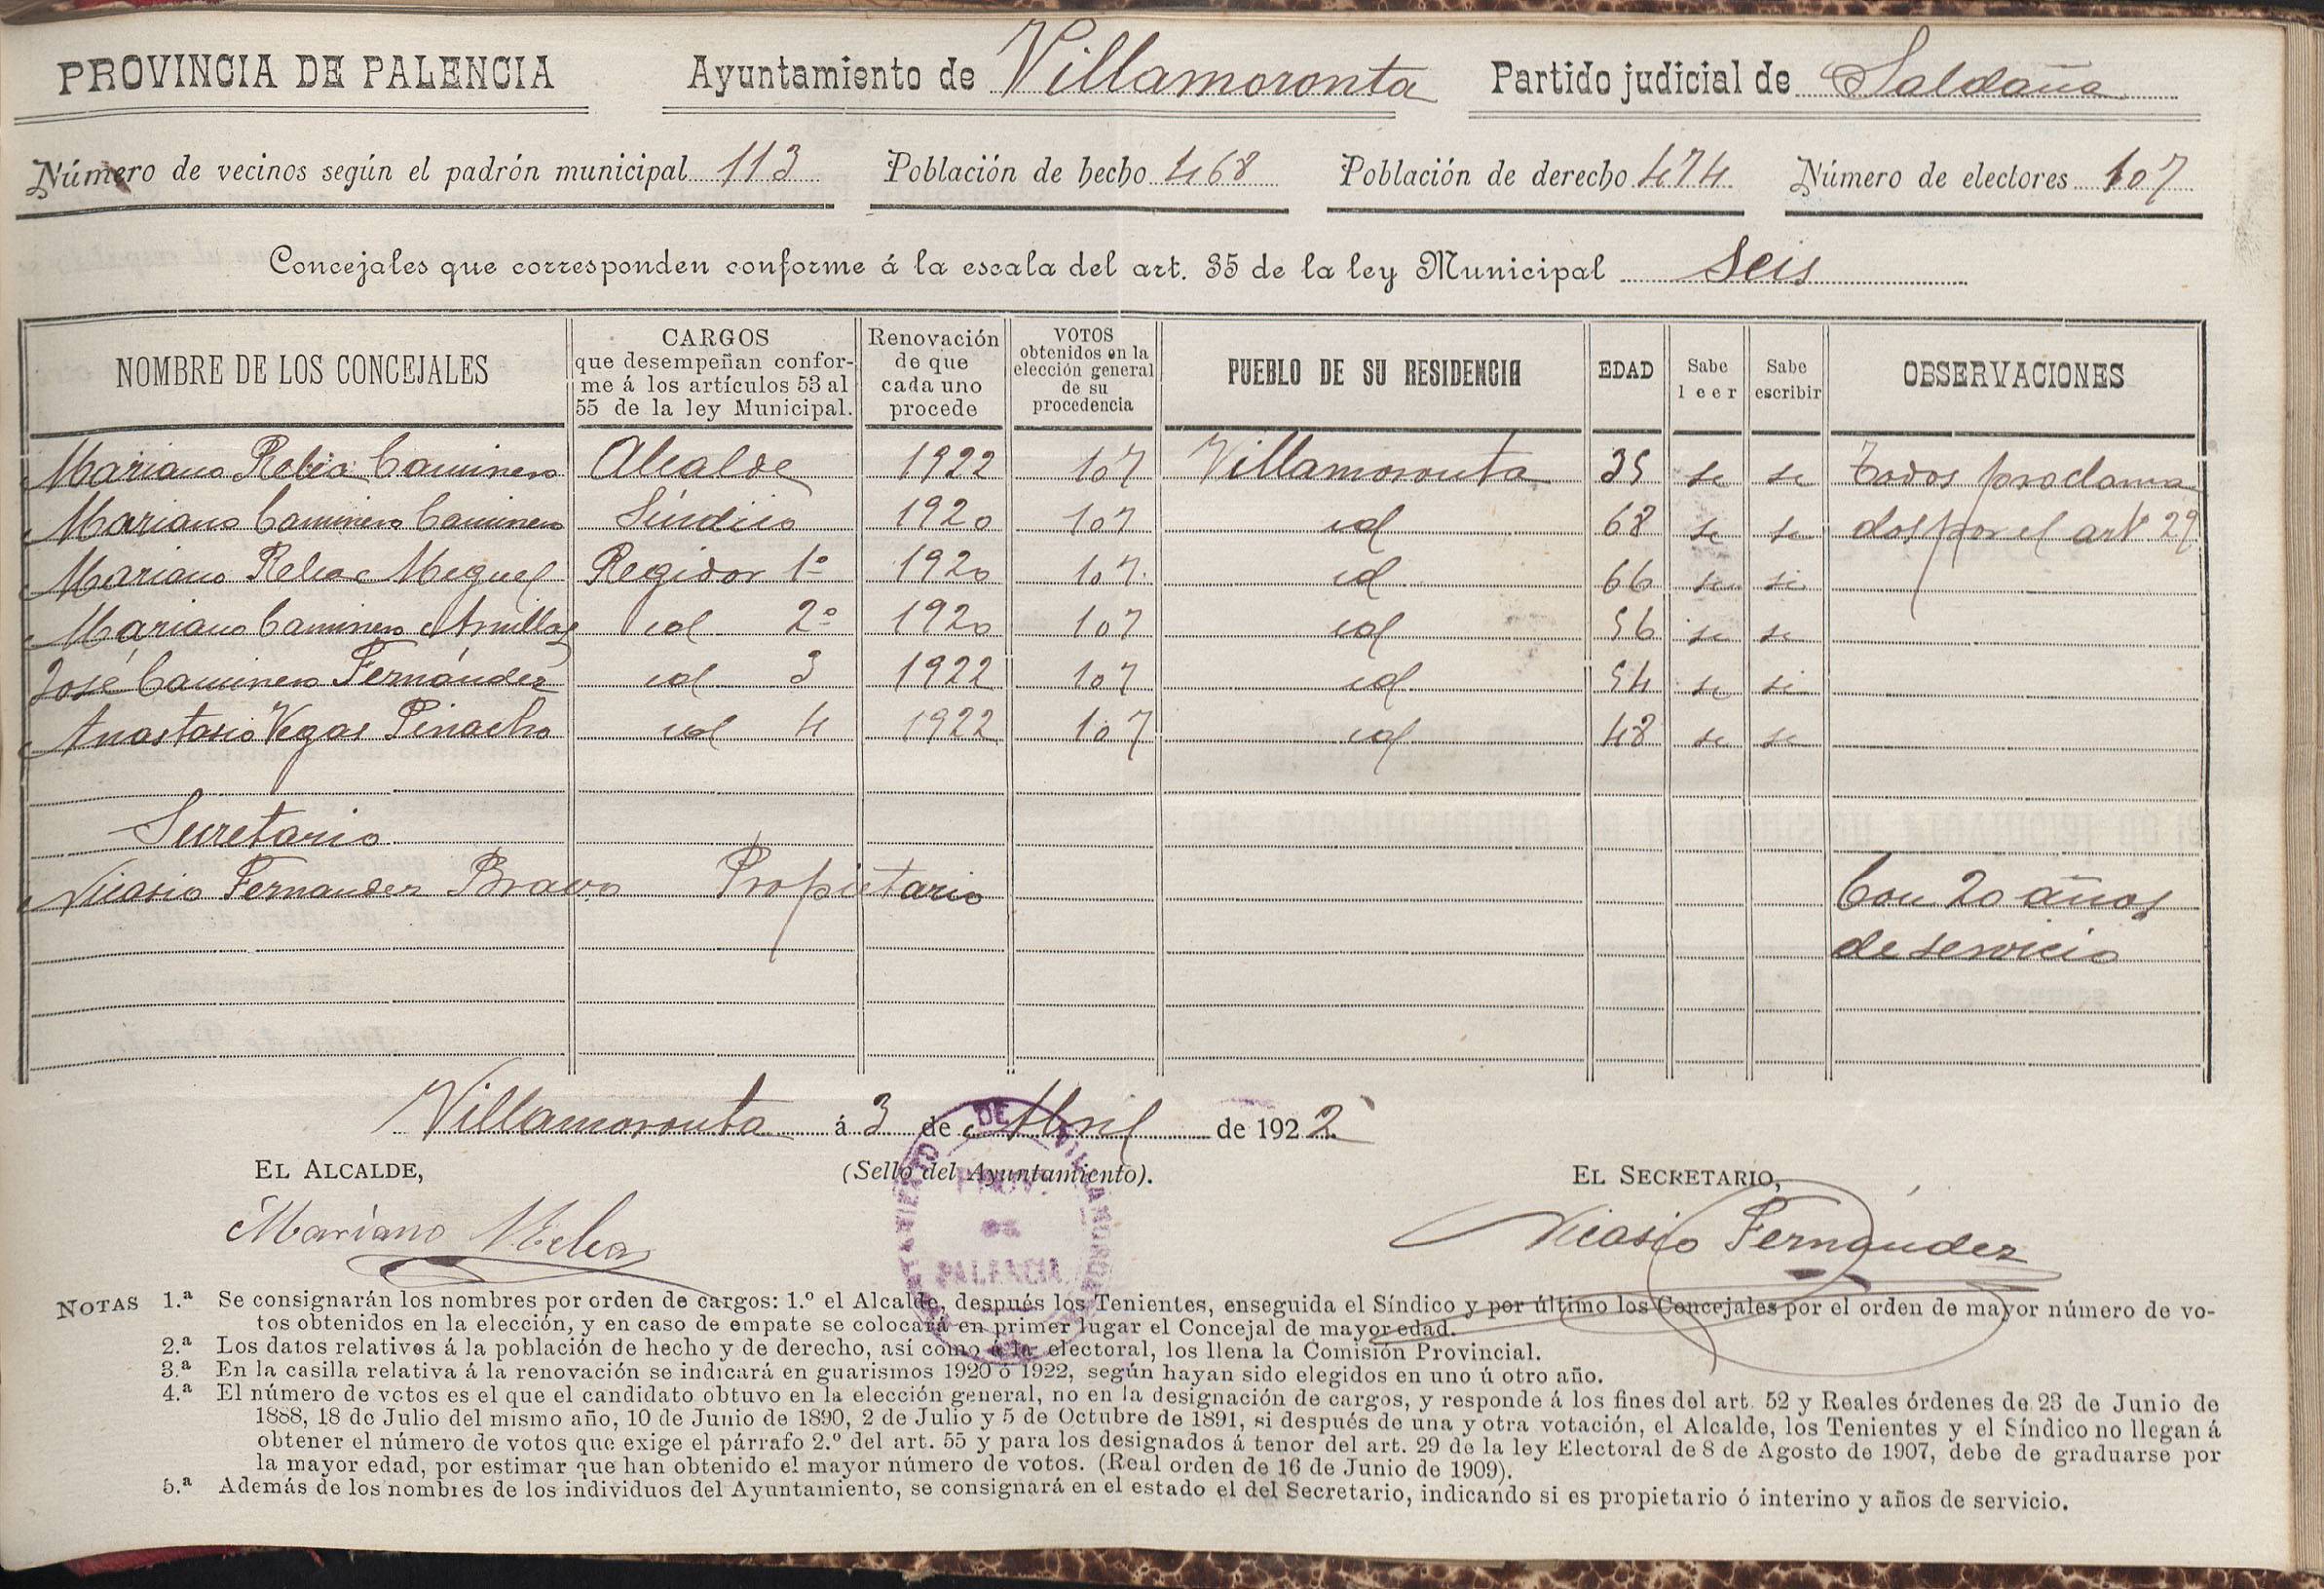 PROVINCIA DE PALENCIA Ayuntamiento de Villamoronta Partido judicial de Saldaña
Número de vecinos según el padrón municipal 113 Población de hecho 468 Población de derecho 474 Número de electores 107
Concejales que corresponden conforme á la escala del art. 35 de la ley Municipal Seis
NOMBRE DE LOS CONCEJALES
CARGOS
que desempeñan confor-
me á los artículos 53 al
55 de la ley Municipal.
Renovación
de que
cada uno
procede
VOTOS
obtenidos en la
elección general
de su
procedencia
PUEBLO DE SU RESIDENCIA
EDAD
Sabe
leer
Sabe
escribir
OBSERVACIONES
Mariano Relea Caminero Alcalde 1922 107 Villamoronta 35 si si Todos proclama
Mariano Caminero Caminero Síndico 1920 107 id 68 si si dos por el artº 29
Mariano Relea Miguel Regidor 1º 1920 107 id 66 si si
Mariano Caminero id 2º 1920 107 id 56 si si
José Caminero Fernández id 3 1922 107 id 54 si si
Anastasio Vegas Pinacho id 4 1922 107 id 48 si si
Secretario
Nicasio Fernandez Bravo Propietario Con 20 años
de servicio
Villamoronta á 3 de Abril de 1922
EL ALCALDE, (Sello del Ayuntamiento). EL SECRETARIO,
Mariano Relea Nicasio Fernández
PROV.
DE
PALENCIA
NOTAS 1.ª Se consignarán los nombres por orden de cargos: 1.º el Alcalde, después los Tenientes, enseguida el Síndico y por último los Concejales por el orden de mayor número de vo-
tos obtenidos en la elección, y en caso de empate se colocará en primer lugar el Concejal de mayor edad.
2.ª Los datos relativos á la población de hecho y de derecho, así como á la electoral, los llena la Comisión Provincial.
3.ª En la casilla relativa á la renovación se indicará en guarismos 1920 ó 1922, según hayan sido elegidos en uno ú otro año.
4.ª El número de votos es el que el candidato obtuvo en la elección general, no en la designación de cargos, y responde á los fines del art. 52 y Reales órdenes de 23 de Junio de
1888, 18 de Julio del mismo año, 10 de Junio de 1890, 2 de Julio y 5 de Octubre de 1891, si después de una y otra votación, el Alcalde, los Tenientes y el Síndico no llegan á
obtener el número de votos que exige el párrafo 2.º del art. 55 y para los designados á tenor del art. 29 de la ley Electoral de 8 de Agosto de 1907, debe de graduarse por
la mayor edad, por estimar que han obtenido el mayor número de votos. (Real orden de 16 de Junio de 1909).
5.ª Además de los nombres de los individuos del Ayuntamiento, se consignará en el estado el del Secretario, indicando si es propietario ó interino y años de servicio.